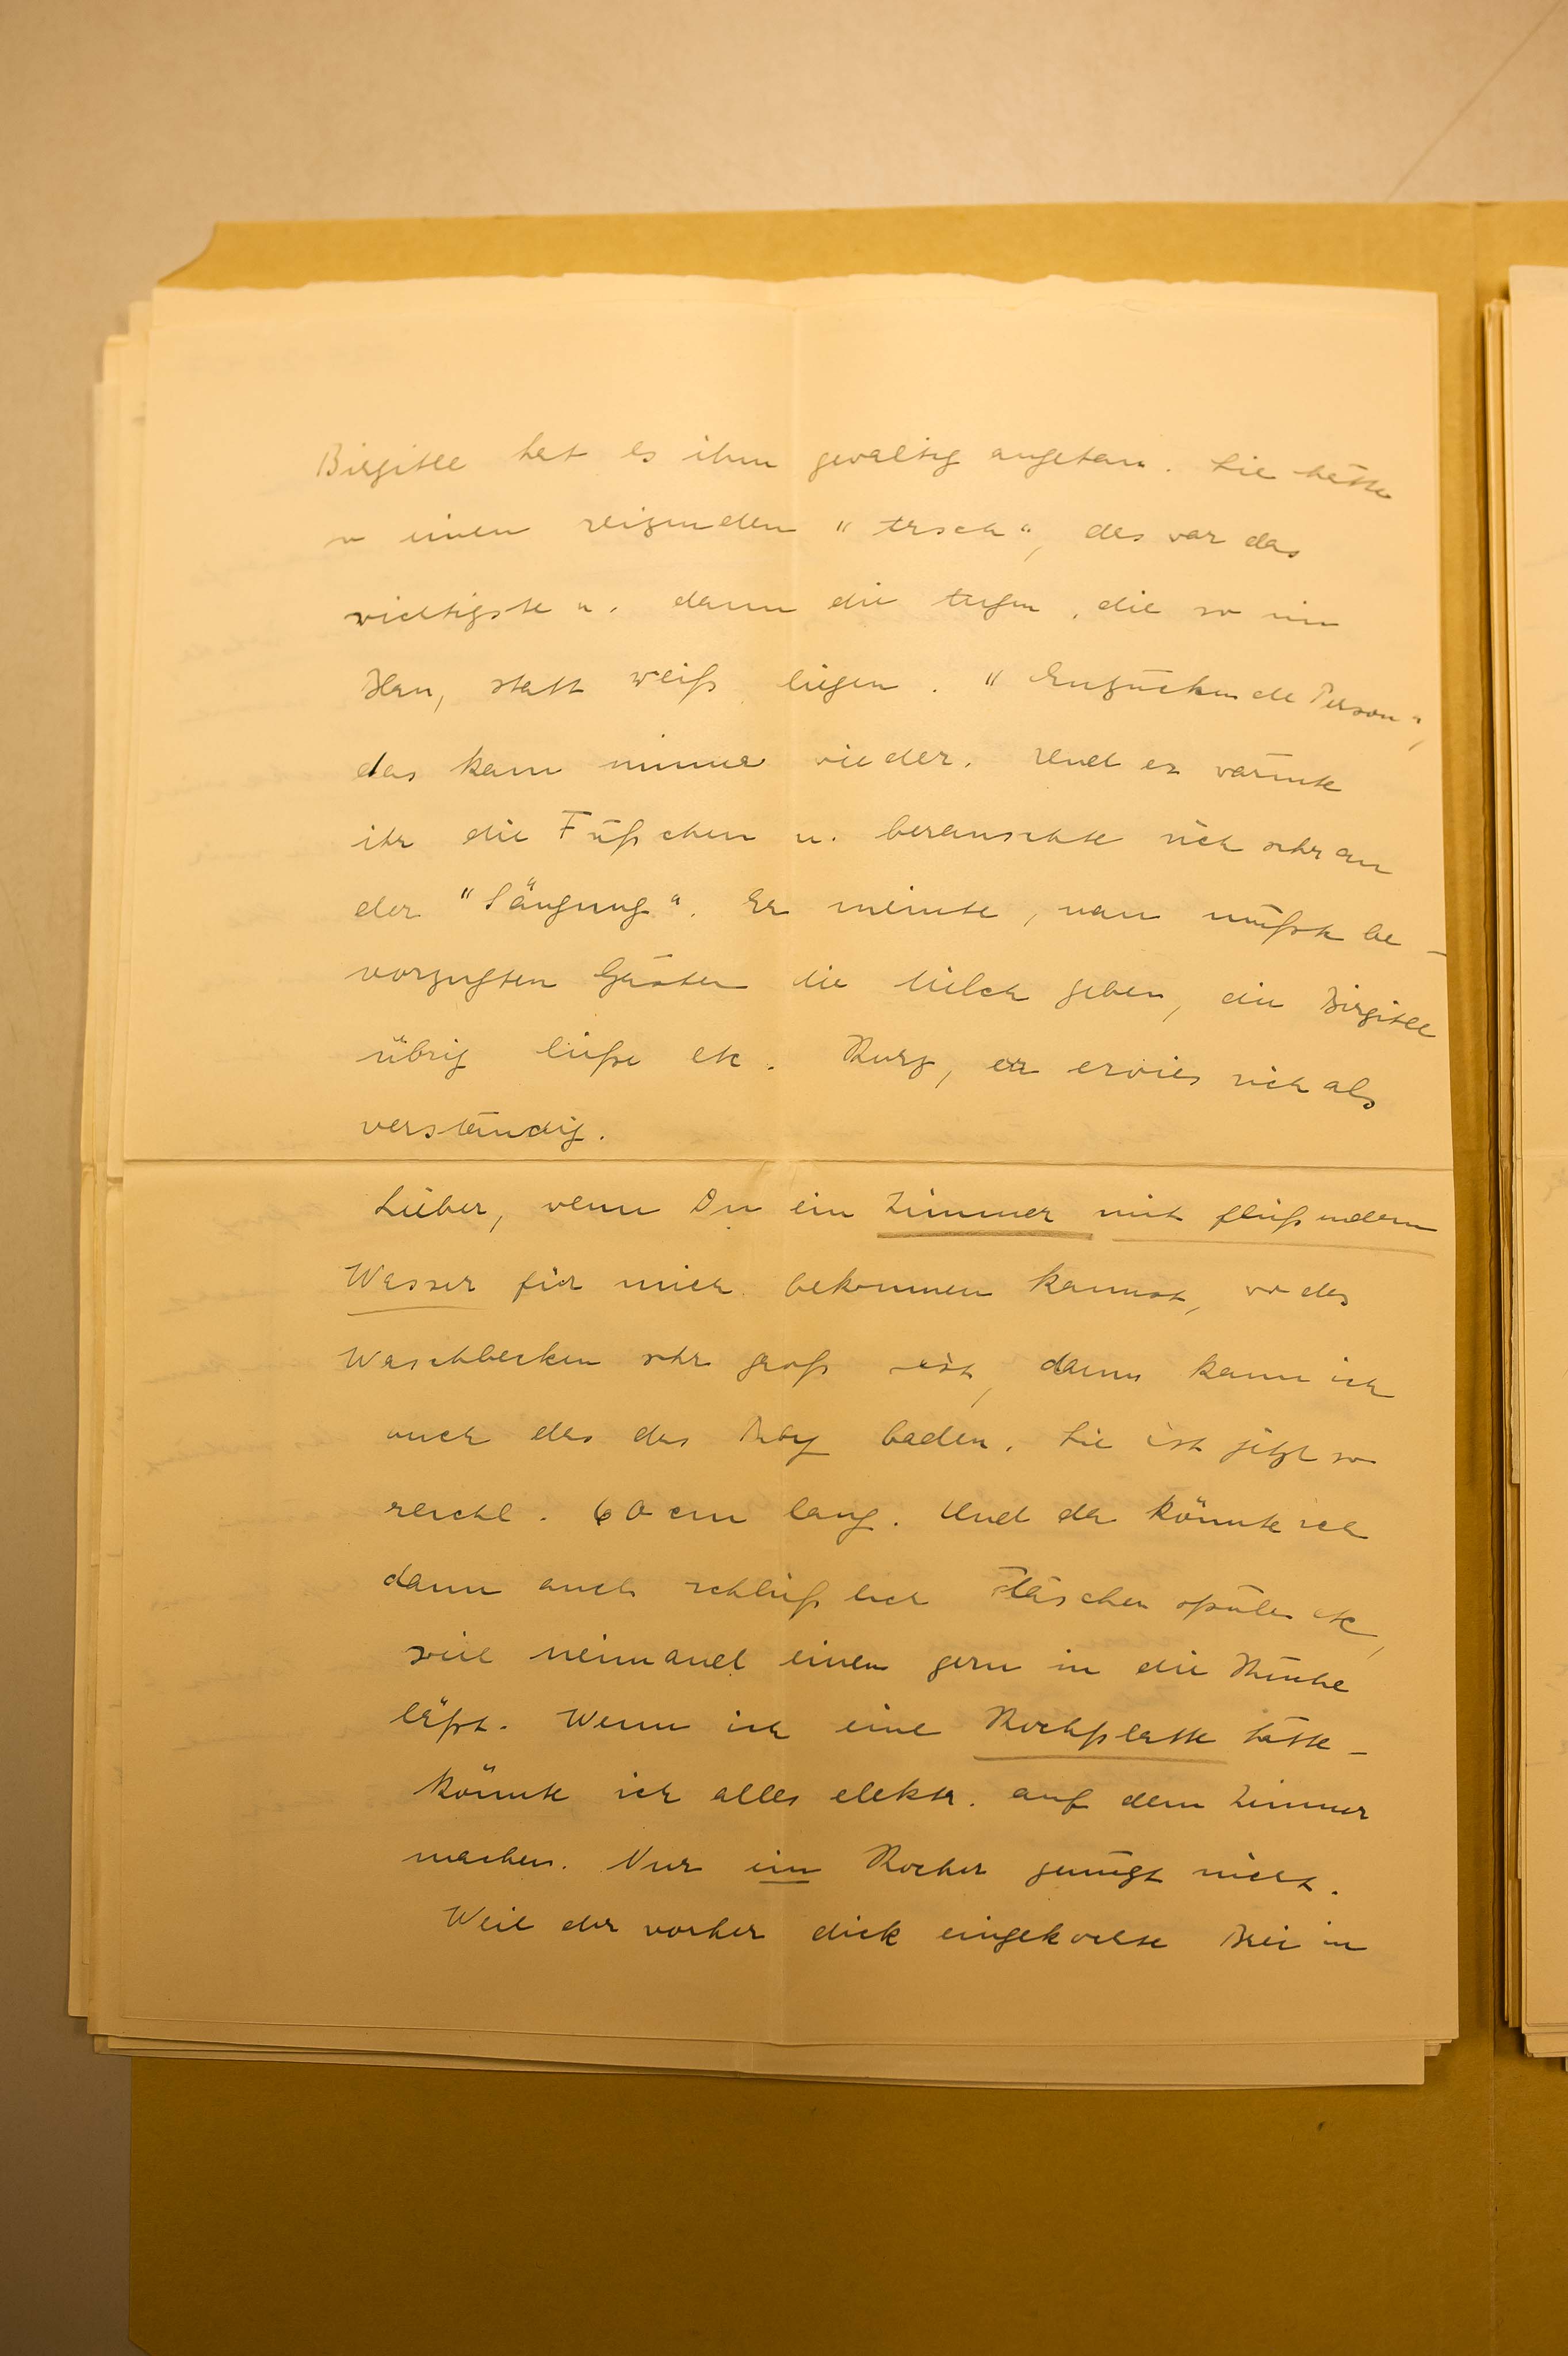 Birgitte hat es ihm gewaltig angetan. Sie hätte
so einen reizenden "Arsch", das war das
wichtigste u. dann die Augen, die so im
Blau, statt weiß liegen. "Entzückende Person",
das kam immer wieder. Und er wärmte
ihr die Füßchen u. berauschte sich sehr an
der "Säugung". Er meinte, man müßte be-
vorzugten Gästen die Milch geben, die Birgitte
übrig ließe etc. Kurz, er erwies sich als
verständig.
Lieber, wenn Du ein Zimmer mit fließendem
Wasser für mich bekommen kannst, wo das
Waschbecken sehr groß ist, dann kann ich
auch das Baby baden. Sie ist jetzt so
reichl. 60 cm lang. Und da könnte ich
dann auch schließlich Fläschen spülen etc,
weil niemand einen gern in die Küche
läßt. Wenn ich eine Kochplatte hätte -
könnte ich alles elektr. auf dem Zimmer
machen. Nur ein Kocher genügt nicht.
Weil der vorher dick eingekochte Brei in